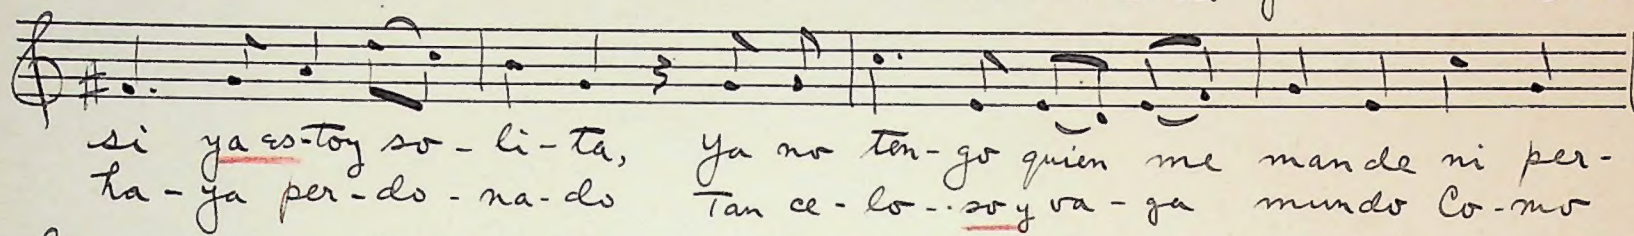 si ya es-toy so-li-ta, Ya no ten-go quien me mande ni per-
ha-ya per-do-na-do Tan ce-lo-so y va-ga mundo Co-mo